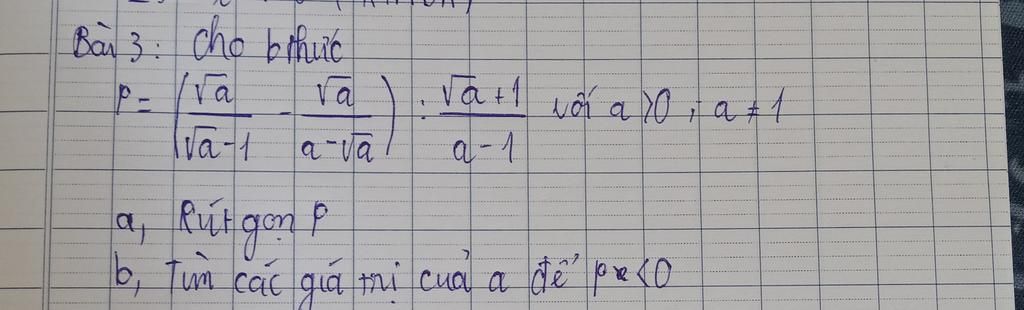 Bài 3: Cho bthức
P = (√a/(√a-1) - √a/(a-√a)) : (√a+1)/(a-1) với a>0, a≠1
a, Rút gọn P
b, Tìm các giá trị của a để P<0